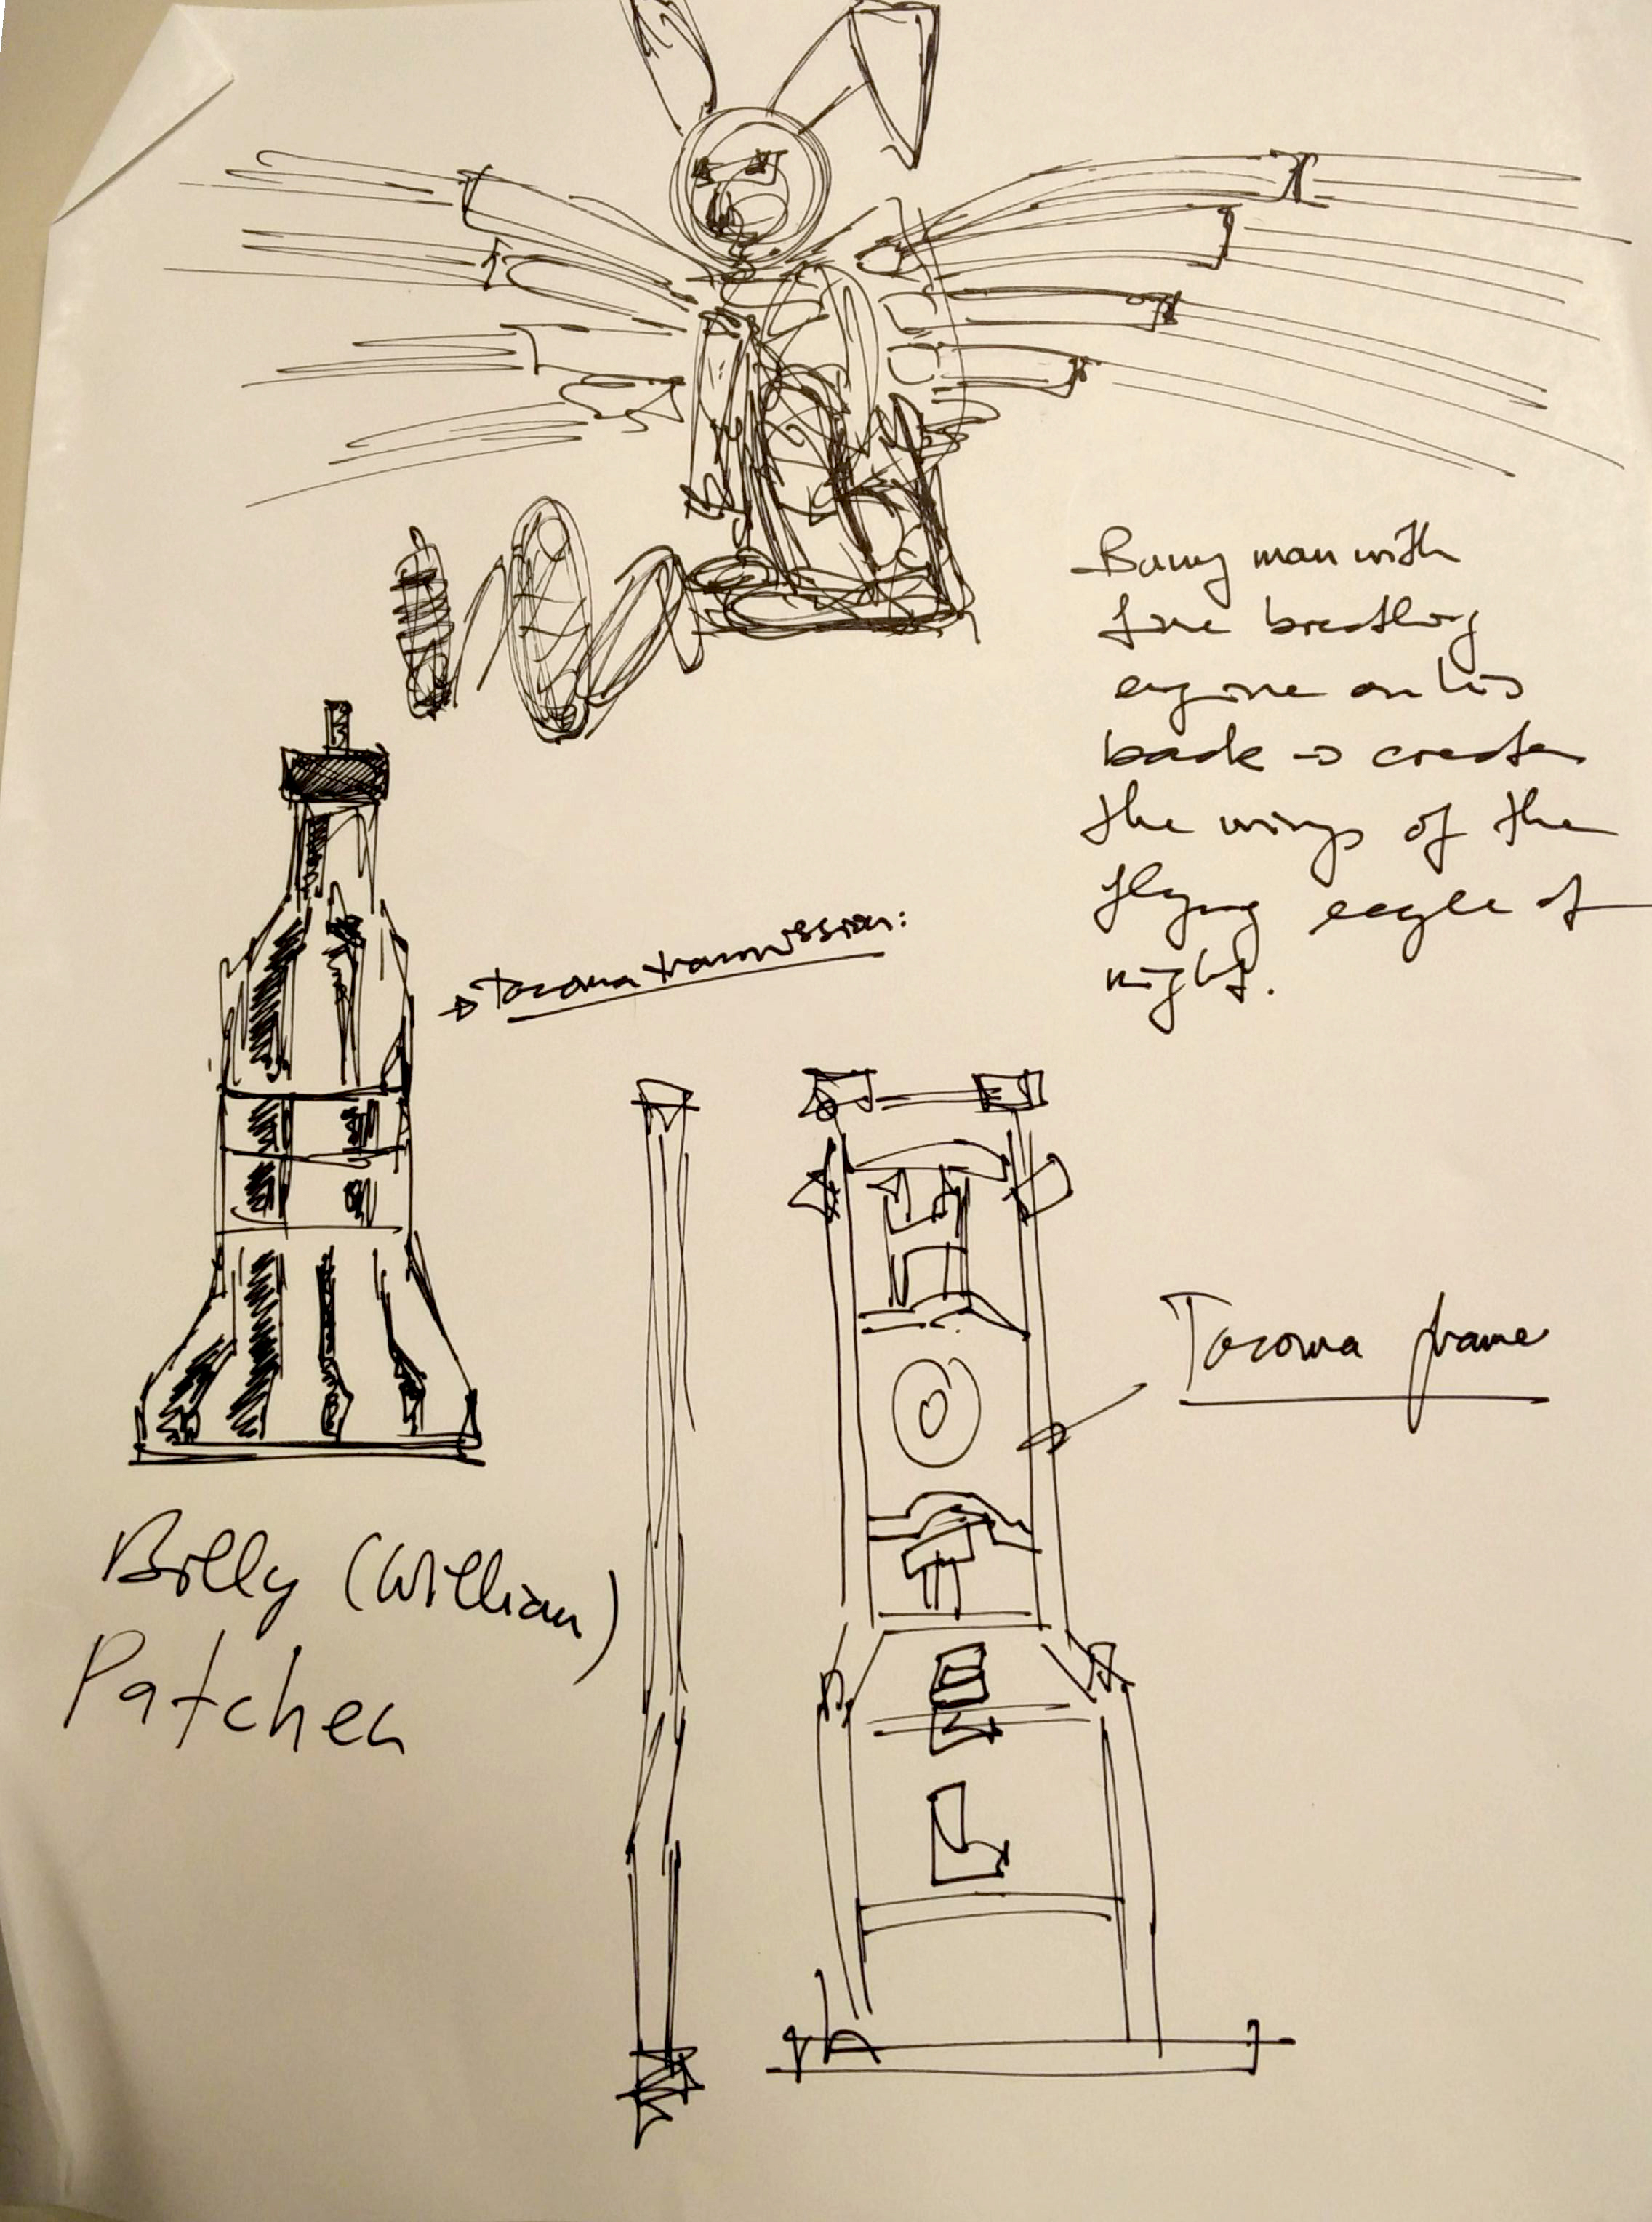 Bunny man with
fire breathing
engine on his
back → creates
the wings of the
flying eagle of
night.
→ Tacoma transmission:
Tacoma frame
Billy (William)
Patcher